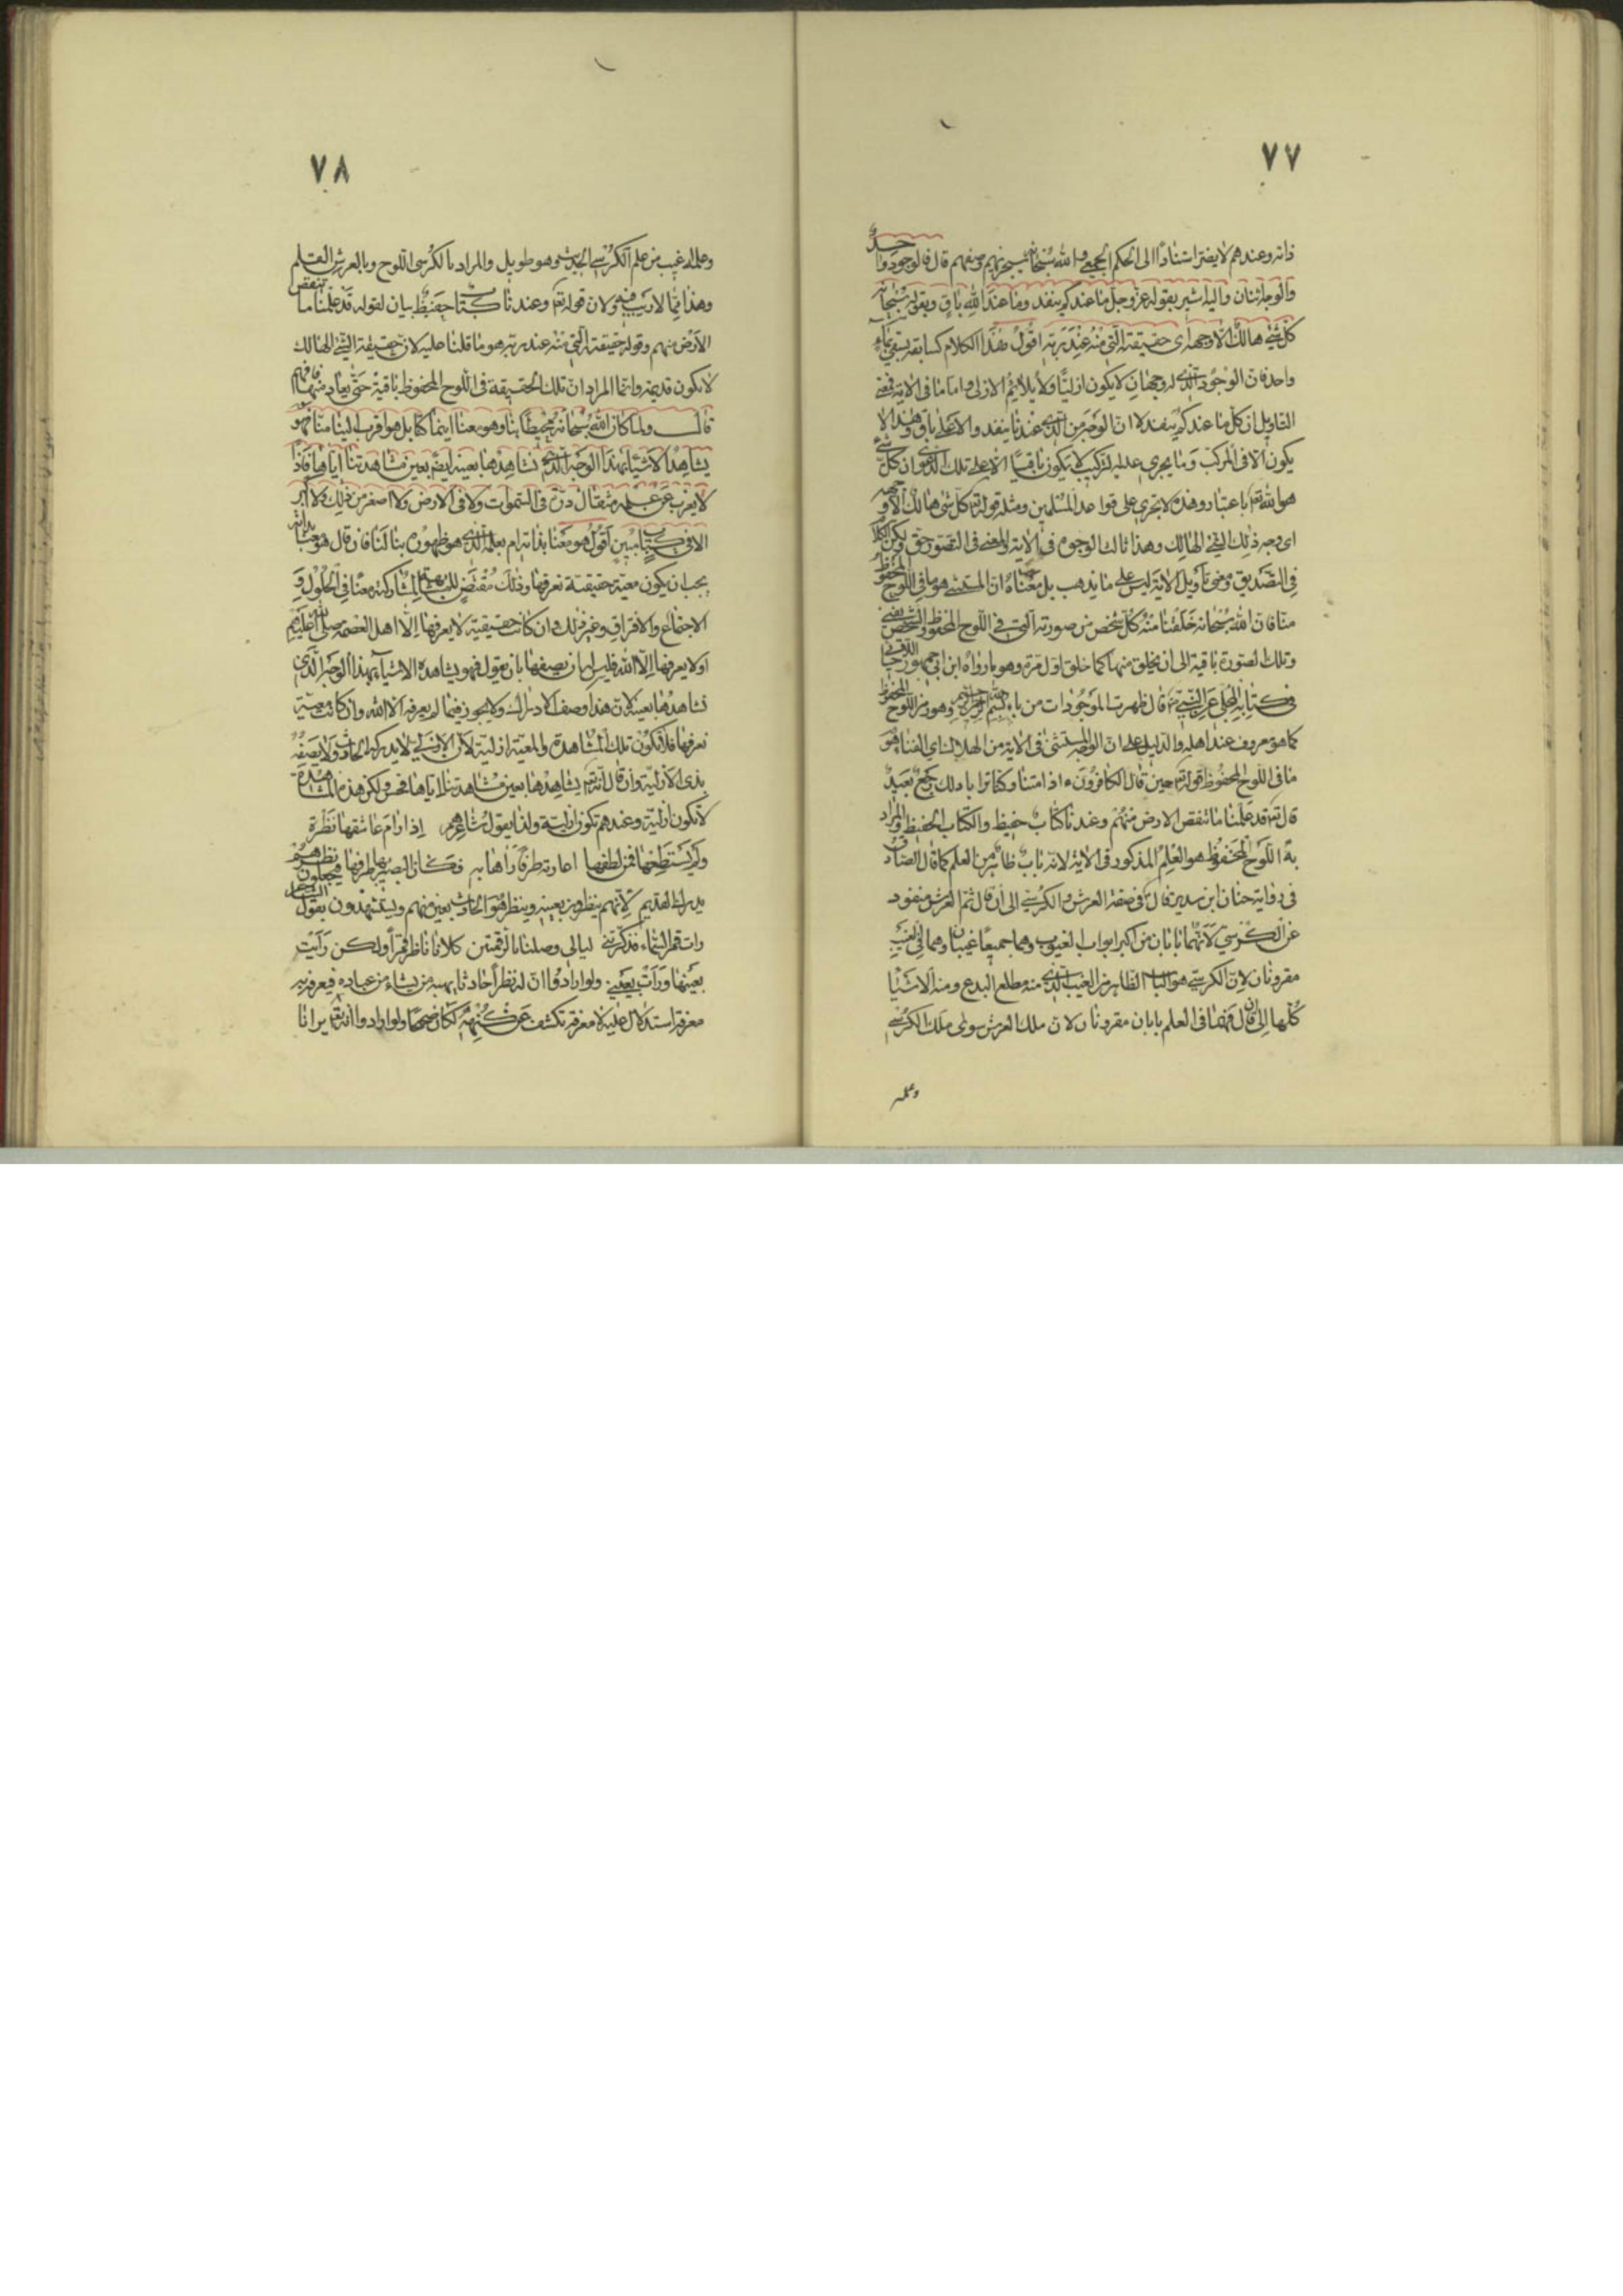 ٧٧
ذاته وعندهم لا يضر استنادا الى الحكم الجمعي والله سبحانه سيجزيهم وصفهم قال فالوجود واحد
والوجه اثنان واليه اشير بقوله عز وجل ما عندكم ينفد وما عند الله باق وبقوله سبحانه
كل شيء هالك الا وجهه اى حقيقته التى منه عند ربه اقول هذا الكلام كسابقه يسقى بماء
واحد فان الوجود الذى له وجهان لا يكون ازليا ولا يلايم الازلى واما ما فى الاية فمعنى
التاويل ان كل ما عندكم ينفد لا ان الوجه من الذى عندنا ينفد والاعلى باق وهذا لا
يكون الا فى المركب وما يجرى عليه التركيب لا يكون باقيا الا على تلك الدعوى ان كل شيء
هو الله تع باعتبار وهذه لا تجرى على قواعد المسلمين ومثله قوله تع كل شئ هالك الا وجهه
اى وجه ذلك الشئ الهالك وهذا ثالث الوجوه فى الاية والمعنى فى التصور حق ولكن الكلام
فى التصديق ومعنى تأويل الاية ليس على ما يذهب بل معناه ان المستثنى هو ما فى اللوح المحفوظ
منا فان الله سبحانه خلقنا منه كل شخص من صورته التى فى اللوح المحفوظ والشخص يفنى
وتلك الصورة باقية الى ان يخلق منها كما خلق اول مرة وهو ما رواه ابن ابى جمهور
فى كتابه المجلى عن النبى ص قال ظهرت الموجودات من باء بسم الله الرحمن الرحيم وهو من اللوح المحفوظ
كما هو معروف عند اهله والدليل على ان الوجه المستثنى فى الاية من الهلاك اى الفناء هو
ما فى اللوح المحفوظ قوله تع حين قال الكافرون ء اذا متنا وكنا ترابا ذلك رجع بعيد
قال تع قد علمنا ما تنقص الارض منهم وعندنا كتاب حفيظ والكتاب الحفيظ والمراد
به اللوح المحفوظ هو العلم المذكور فى الاية لانه باب ظاهر من العلم كما قال الصادق
فى رواية حنان ابن سدير قال فى صفة العرش والكرسى الى ان قال ثم العرش متفرد
عن الكرسى لانهما بابان من اكبر ابواب الغيوب وهما جميعا غيبان وهما فى الغيب
مقرونان لان الكرسى هو الباب الظاهر من الغيب الذى منه مطلع البدع ومنه الاشياء
كلها الى ان قال فهما فى العلم بابان مقرونان لان ملك العرش سوى ملك الكرسى
وعلمه
٧٨
وعلمه غيب من علم الكرسى الحديث وهو طويل والمراد بالكرسى اللوح وبالعرش القلم
وهذا مما لا ريب فيه ولان قوله تع وعندنا كتاب حفيظ بيان لقوله قد علمنا ما تنقص
الارض منهم وقوله حقيقته التى منه عند ربه هو ما قلنا عليه لان حقيقة الشئ الهالك
لا تكون قديمة وانما المراد ان تلك الحقيقة فى اللوح المحفوظ باقية حتى يعاد منها فافهم
قال ولما كان الله سبحانه محيطا بنا وهو معنا اينما كنا بل هو اقرب الينا منا فهو
يشاهد الاشياء بهذا الوجه الذى نشاهدها بعينه ايضا بعين مشاهدتنا اياها فاذا
لا يعزب عن علمه مثقال ذرة فى السموات ولا فى الارض ولا اصغر من ذلك ولا اكبر
الا فى كتاب مبين اقول هو معنا بذاته ام بعلمه الذى هو ظهوره بنا لنا فان قال هو معنا بذاته
يجب ان يكون معية حقيقية نعرفها وذلك مقتض للمشابهة لمشاركته معنا فى الحلول و
الاجتماع والافتراق وغير ذلك وان كانت حقيقية لا يعرفها الا اهل العصمة صلى الله عليهم
او لا يعرفها الا الله فليس له ان يصفها بان يقول فهو يشاهد الاشياء بهذا الوجه الذى
نشاهدها بعينه لان هذا وصف الادراك ولا يجوز فيما لم يعرفه الا الله وان كانت معية
نعرفها فلا تكون تلك المشاهدة والمعية ازلية لان الازلى لا يدركه الحادث ولا يصفه
بذى الازلية وان قال انه تع يشاهدها بعين مشاهدتنا اياها فحسن ولكن هذه المشاهدة
لا تكون ازلية وعندهم تكون ازلية ولذا يقول شاعرهم اذا رام عاشقها نظرة
ولم يستطعها فمن لطفها اعارته طرفا رأها به فكان البصير بها طرفها فيجعلون نظرهم
يدرك القديم لانهم ينظرون بعينه وينظر هو الحادث بعين منهم ويستشهدون بقول الشاعر
رات قمر السماء فذكرتنى ليالى وصلنا بالرقمتين كلانا ناظر قمرا ولكن رأيت
بعينها ورأت بعينى ولو ارادوا ان له نظرا حادثا يهبه من يشاء من عباده فيعرف به
معرفة استدلال عليه لا معرفة تكشف عن كنهه لكان صحيحا ولو ارادوا انه تع يرانا